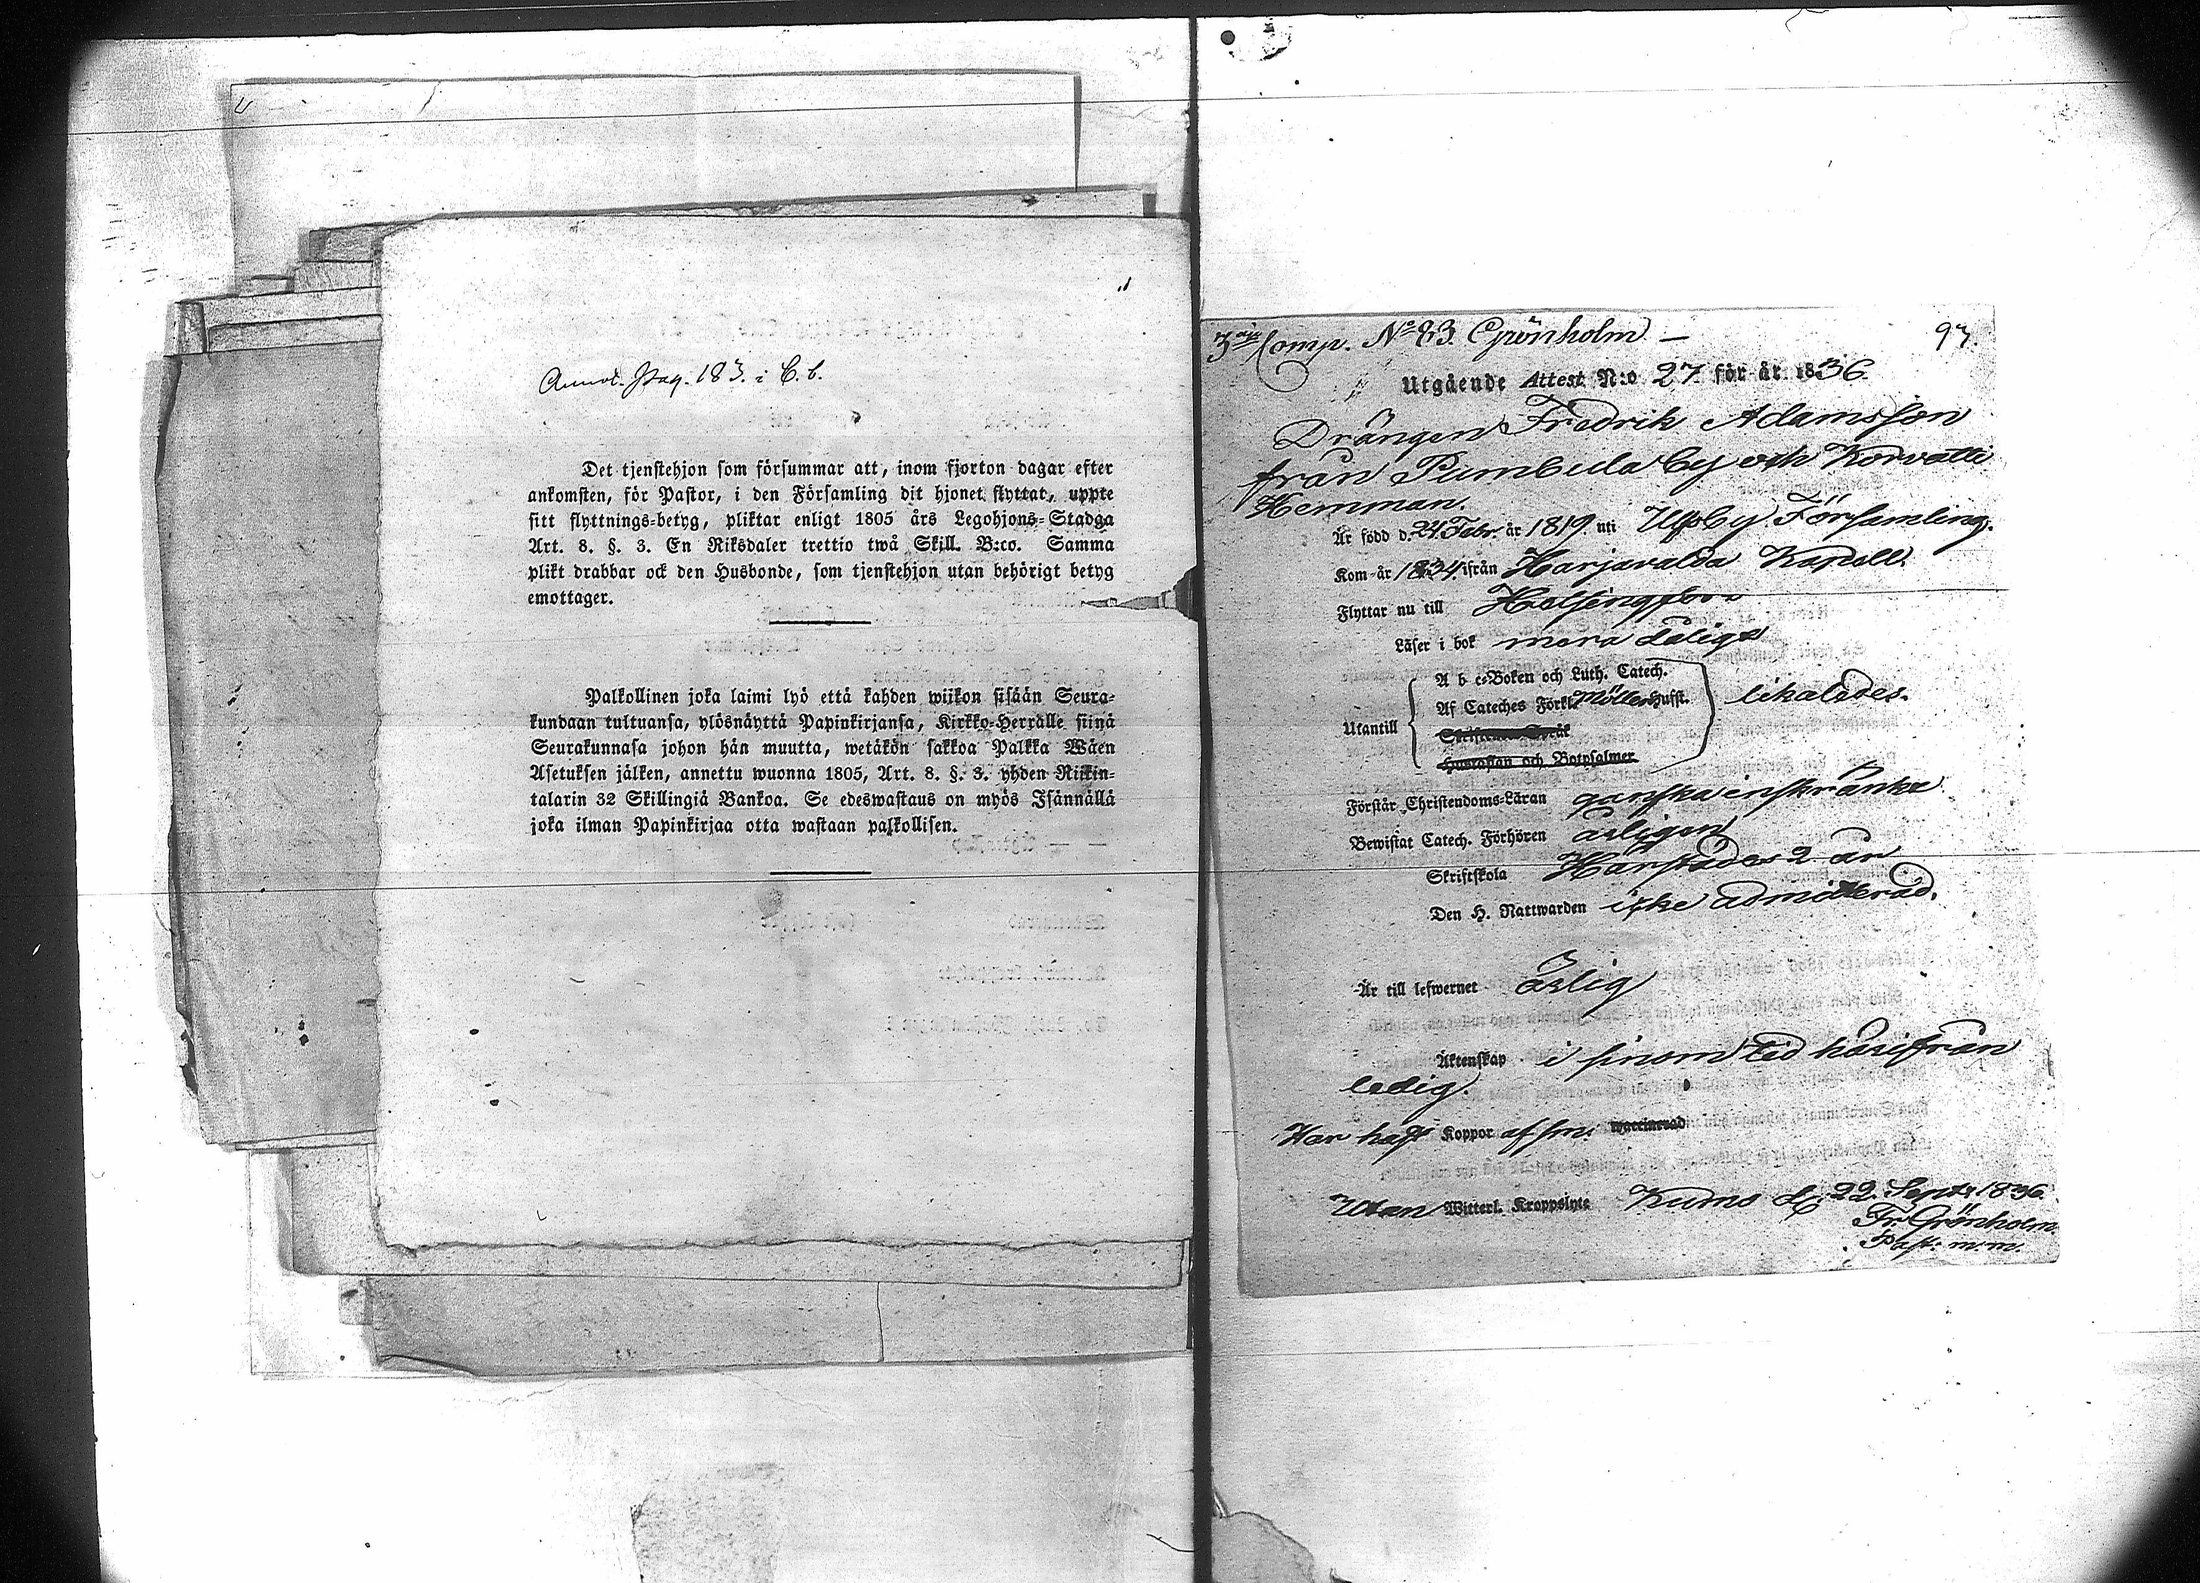 Annot. Pag. 183. i C. b.
Det tjenstehjon som försummar att, inom fjorton dagar efter
ankomsten, för Pastor, i den Församling dit hjonet flyttat, uppte
sitt flyttnings-betyg, pliktar enligt 1805 års Legohjons-Stadga
Art. 8. §. 3. En Riksdaler trettio twå Skill. B:co. Samma
plikt drabbar ock den Husbonde, som tjenstehjon utan behörigt betyg
emottager.
Palkollinen joka laimi lyö että kahden wiikon sisään Seura-
kundaan tultuansa, ylösnäyttä Papinkirjansa, Kirkko-Herralle siinä
Seurakunnasa johon hän muutta, wetäkön sakkoa Palkka Wäen
Asetuksen jälken, annettu wuonna 1805, Art. 8. §. 3. yhden Riikin-
talarin 32 Skillingiä Bankoa. Se edeswastaus on myös Isännällä
joka ilman Papinkirjaa otta wastaan palkollisen.
3dje Comp. No 83. Grönholm —
93.
Utgående Attest N:o 27 för år 1836.
Drängen Fredrik Adamsson
från Pumbula by och Korvatti
Hemman.
Är född d. 24 Febr. år 1819. uti Ulfsby Församling.
Kom år 1834 ifrån Harjavalda Kapell.
Flyttar nu till Helsingfors
Läser i bok mera dåligt
A b c-Boken och Luth. Catech.
Af Cateches Förkl. Möllers Hufst.
Utantill likaledes.
Skriftenes Språk
Hustaflan och Botpsalmer
Förstår Christendoms-Läran ganska inskränkt
Bewistat Catech. Förhören årligen
Skriftskola Harstädes 2 år
Den H. Nattwarden icke admitterad.
Är till lefwernet ärlig
Äktenskap i sinom tid härifrån
ledig.
Har haft Koppor af sm. waccinerad
Utan Witterl. Kroppslyte Kumo d. 22 Sept. 1836.
Fr. Grönholm
Past. m.m.